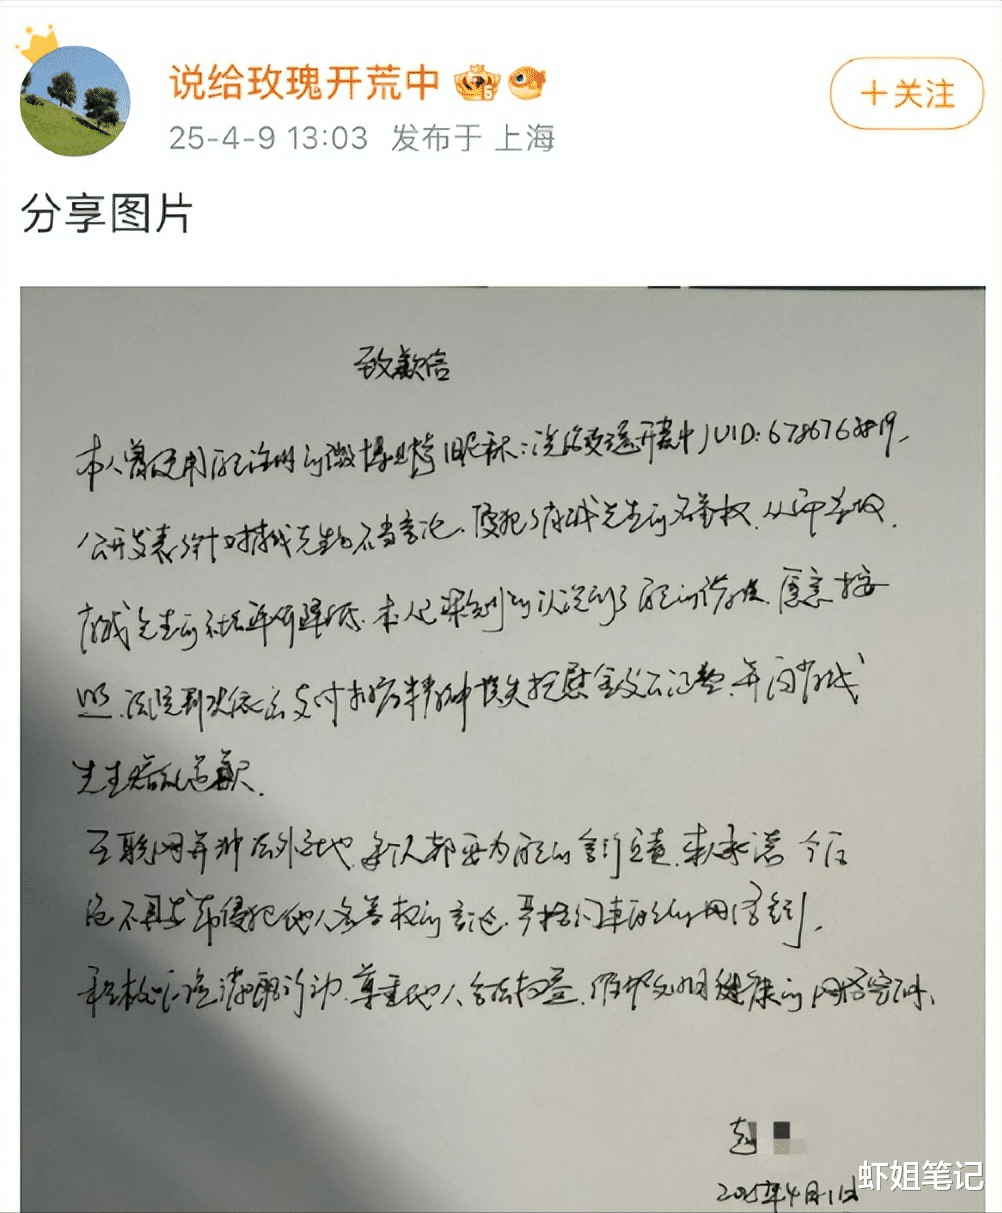 说给玫瑰开荒中
25-4-9 13:03 发布于 上海
+关注
分享图片
致歉信
本人曾使用自己注册的微博账号(昵称:说给玫瑰开荒中)UID:6786763819,
公开发表了针对檀健次先生的不当言论,侵犯了先生的名誉权,从而导致
先生的社会评价降低。本人已深刻的认识到了自己的错误,愿意按
照法院判决依法支付精神损害抚慰金及公证费,并向
先生赔礼道歉。
互联网并非法外之地,每个人都要为自己的言行负责,本人承诺今后
绝不再发布侵犯他人名誉权的言论,严格约束自己的网络言行,
尊重他人合法权益,维护文明健康的网络空间。
赵
2025年4月1日
虾姐笔记